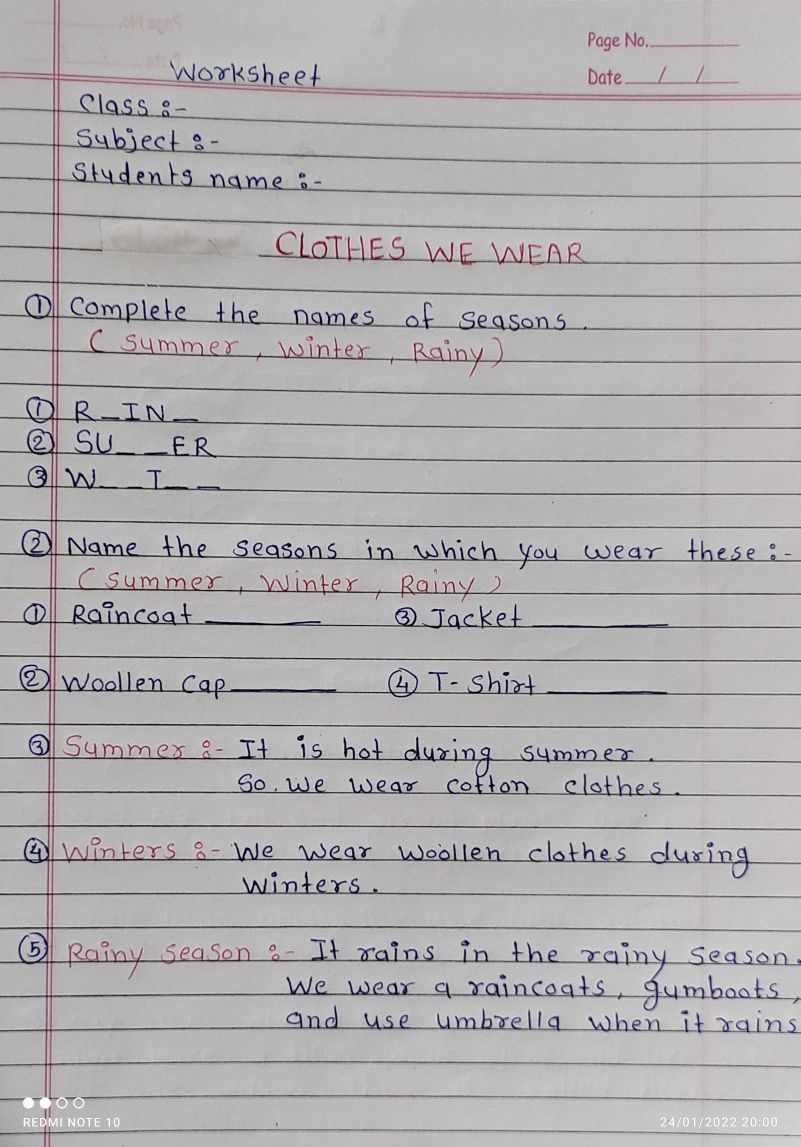 Page No.
Date / /
Worksheet
Class :-
Subject :-
Students name :-
CLOTHES WE WEAR
① Complete the names of seasons.
(Summer, Winter, Rainy)
① R_IN_
② SU__ER
③ W__T__
② Name the seasons in which you wear these :-
(Summer, Winter, Rainy)
① Raincoat ______ ③ Jacket ______
② Woollen Cap ______ ④ T-Shirt ______
③ Summer :- It is hot during summer.
So. We wear cotton clothes.
④ Winters :- We wear woollen clothes during
winters.
⑤ Rainy season :- It rains in the rainy season.
We wear a raincoats, gumboots,
and use umbrella when it rains
REDMI NOTE 10
24/01/2022 20:00